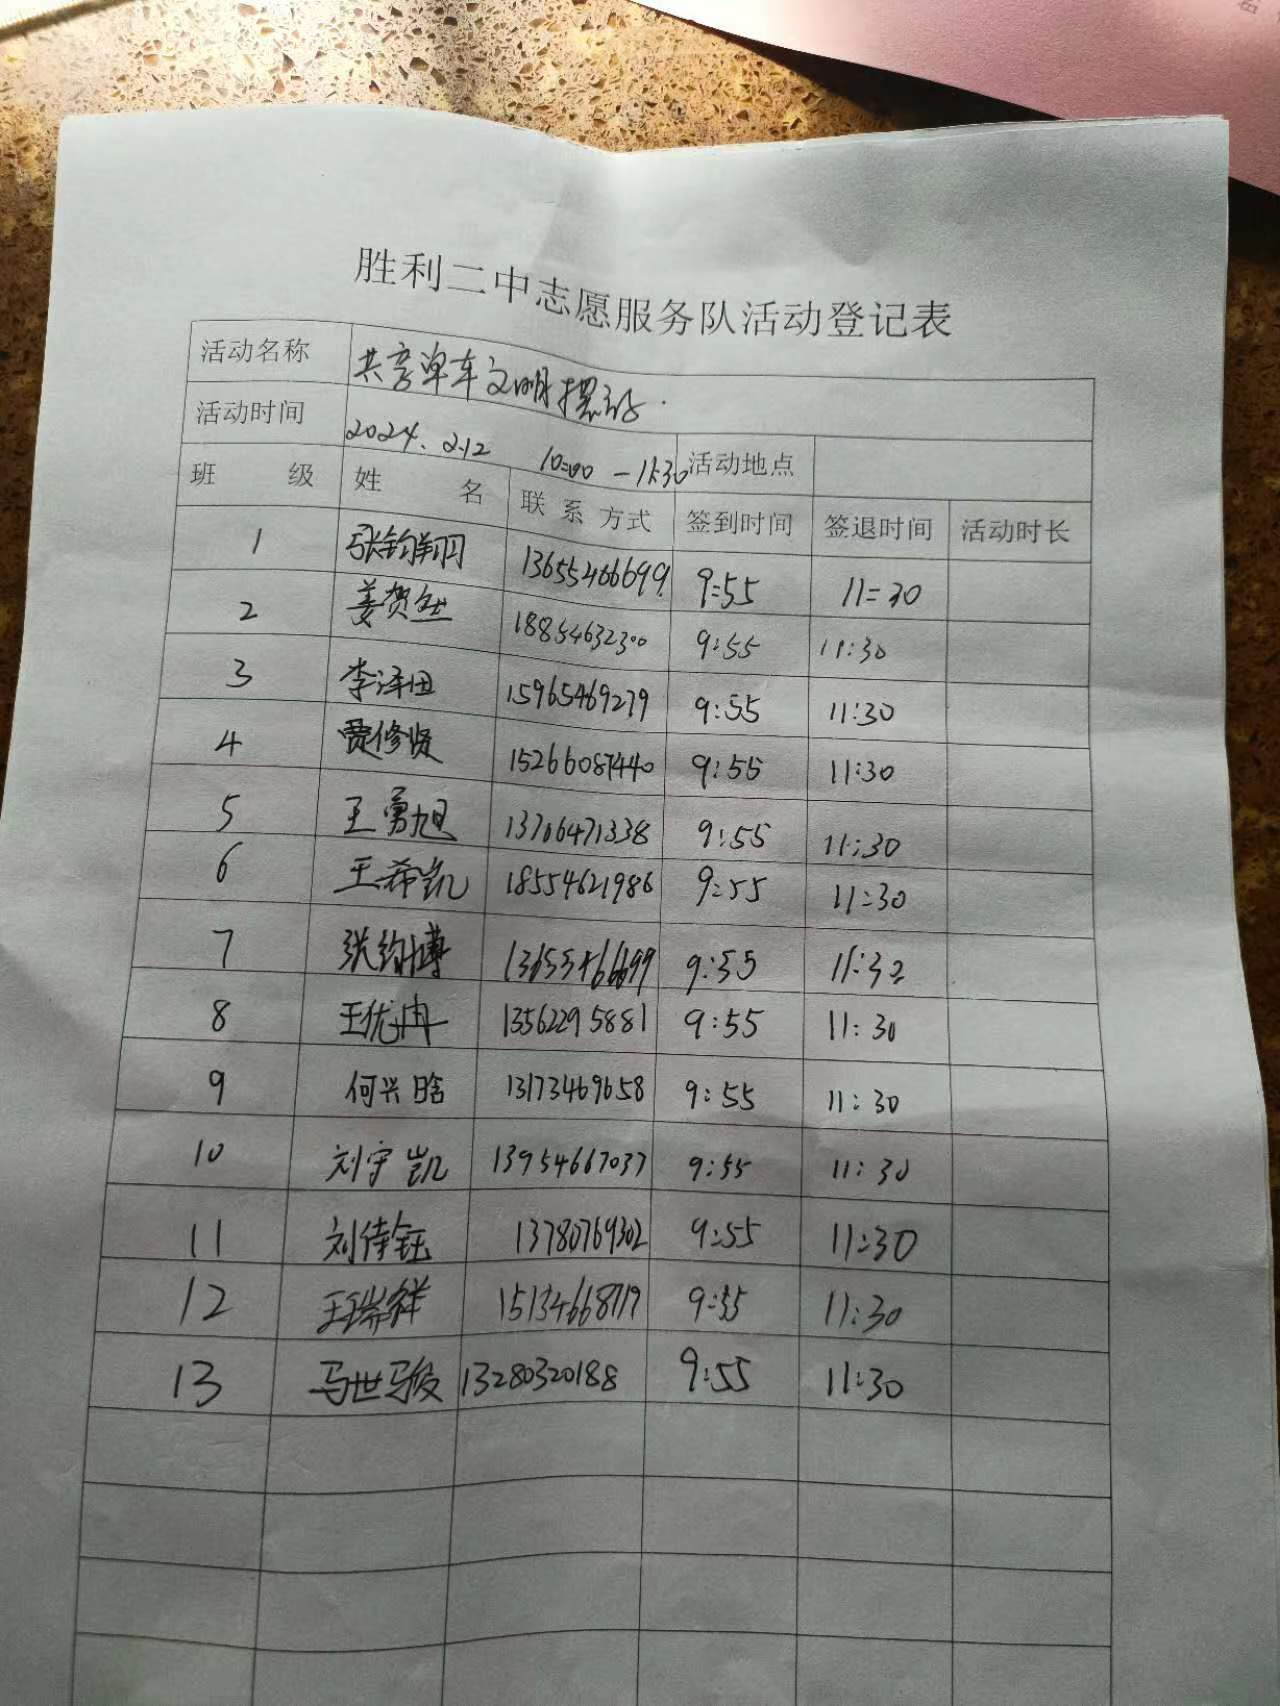 胜利二中志愿服务队活动登记表
活动名称 共享单车文明摆放.
活动时间 2024.2.12 10:00-11:30 活动地点
班 级 姓 名 联系方式 签到时间 签退时间 活动时长
1 张钧翔 13655466699 9:55 11:30
2 姜贺 18854632300 9:55 11:30
3 李泽田 15965469279 9:55 11:30
4 贾修贤 15266087440 9:55 11:30
5 王勇旭 13706471338 9:55 11:30
6 王希凯 18554621986 9:55 11:30
7 张钧博 13655466699 9:55 11:32
8 王优冉 13562295881 9:55 11:30
9 何兴晗 13173469658 9:55 11:30
10 刘宇凯 13954667037 9:55 11:30
11 刘倖钰 13780769302 9:55 11:30
12 王瑞祥 15134668719 9:55 11:30
13 马世骏 13280320188 9:55 11:30